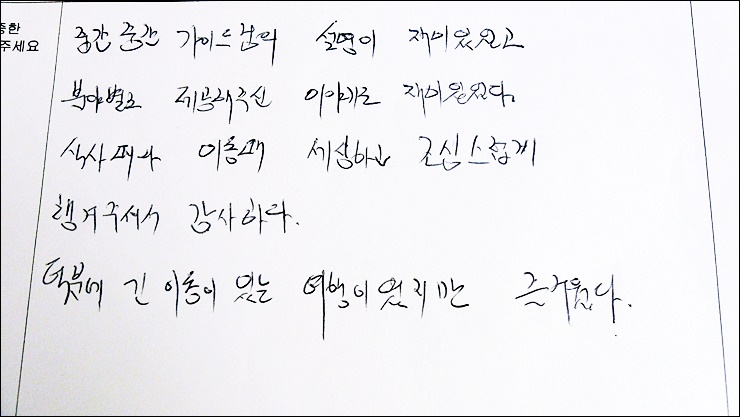 중한
주세요
중간중간 가이드님의 설명이 재미있었고
분야별로 제공해주신 이야기도 재미있었다.
식사때나 이동때 세심하고 조심스럽게
챙겨주셔서 감사하다.
덕분에 긴 이동이 있는 여행이었지만 즐거웠다.